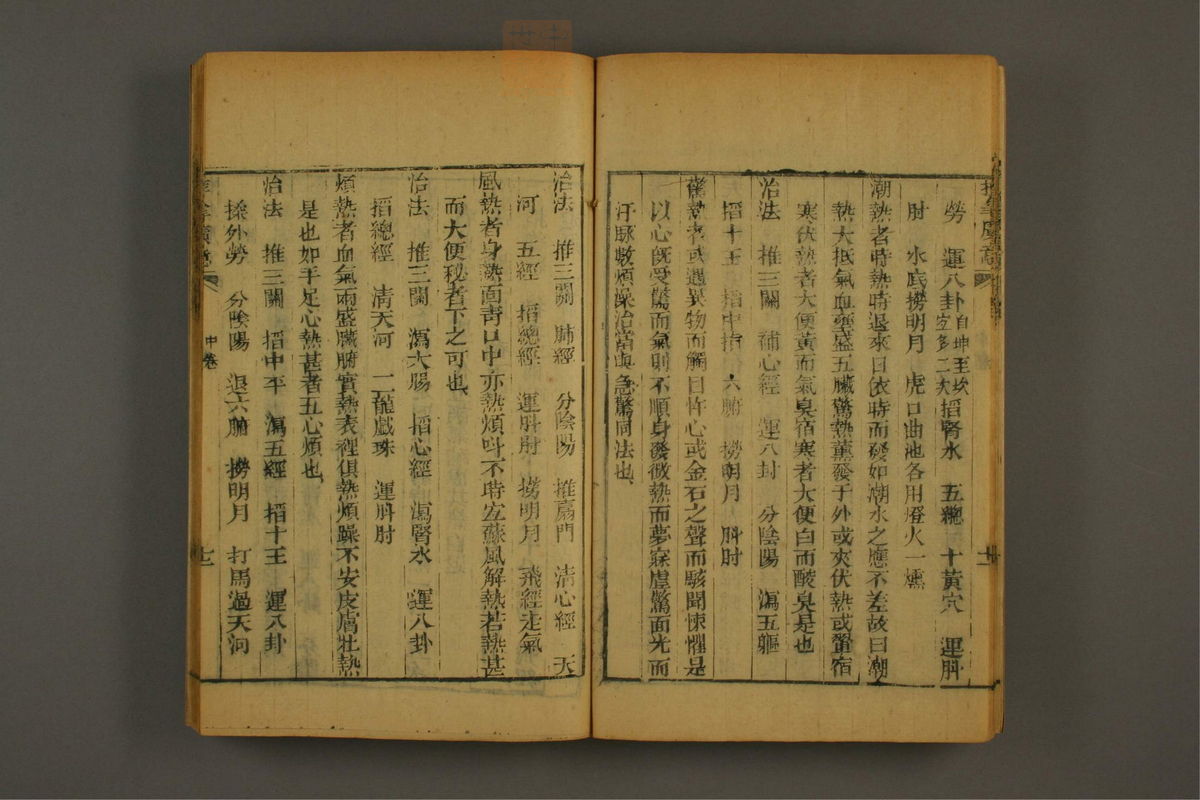 勞　運八卦自坤至坎宜多二次　掐腎水　五總　十黃穴　運㪷
肘　水底撈明月　虎口曲池各用燈火一燋
潮熱者時熱時退來日依時而發如潮水之應不差故曰潮
熱大抵氣血壅盛五臟驚熱薰發于外或夾伏熱或蟄宿
寒伏熱者大便黃而氣臭宿寒者大便白而酸臭是也
治法　推三關　補心經　運八卦　分陰陽　瀉五軀
掐十王　掐中指　六腑　撈明月　㪷肘
驚熱者或遇異物而觸目忤心或金石之聲而駭聞悚懼是
以心旣受驚而氣則不順身發微熱而夢寐虛驚面光而
汗脉數煩燥治當與急驚同法也
治法　推三關　肺經　分陰陽　推扇門　清心經　天
河　五經　掐總經　運㪷肘　撈明月　飛經走氣
風熱者身熱面靑口中亦熱煩呌不時宜蘇風解熱若熱甚
而大便秘者下之可也
治法　推三關　瀉大腸　掐心經　瀉腎水　運八卦
掐總經　清天河　二龍戲珠　運㪷肘
煩熱者血氣兩盛臟腑實熱表裡俱熱煩躁不安皮膚壯熱
是也如手足心熱甚者五心煩也
治法　推三關　掐中平　瀉五經　掐十王　運八卦
揉外勞　分陰陽　退六腑　撈明月　打馬過天河
中卷